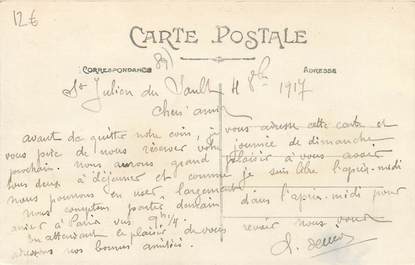 12€
CARTE POSTALE
CORRESPONDANCE
ADRESSE
St Julien du Sault 4 8bre 1917
Chers amis
avant de quitter notre coin, je vous adresse cette carte et
vous prie de nous réserver votre journée de dimanche
prochain. Nous aurons grand plaisir à vous avoir
tous deux à déjeuner et comme je suis libre l'après-midi
nous pourrons en user largement
Nous comptons partir demain dans l'après-midi pour
arriver à Paris vers 9h 1/4
En attendant le plaisir de vous revoir nous vous
adressons nos bonnes amitiés.